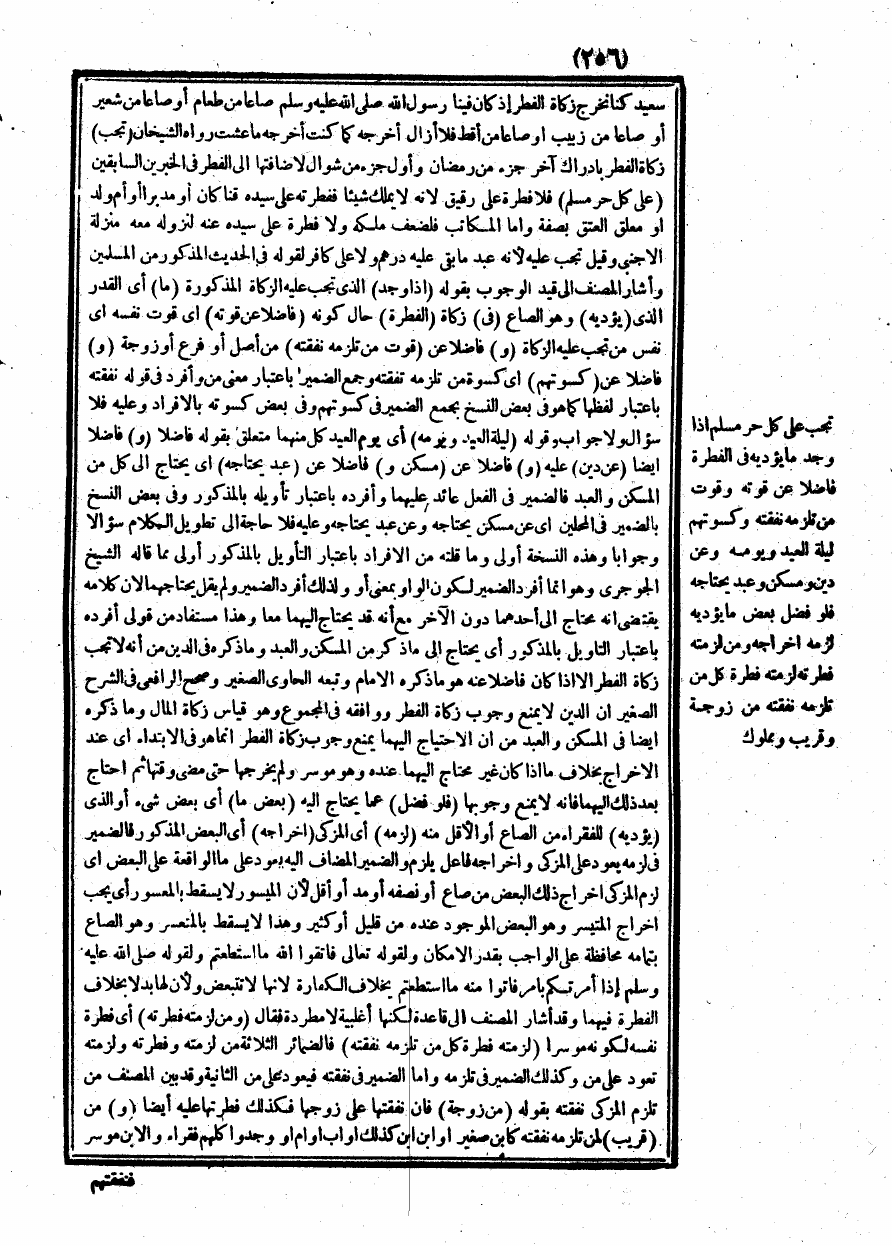 (٢٥٦)
سعيد كنا نخرج زكاة الفطر إذ كان فينا رسول الله صلى الله عليه وسلم صاعا من طعام أو صاعا من شعير
أو صاعا من زبيب او صاعا من أقط فلا أزال أخرجه كما كنت أخرجه ما عشت رواه الشيخان (تجب)
زكاة الفطر بادراك آخر جزء من رمضان وأول جزء من شوال لاضافتها الى الفطر فى الخبرين السابقين
(على كل حر مسلم) فلا فطرة على رقيق لانه لا يملك شيئا ففطرته على سيده قنا كان أو مدبرا أو أم ولد
او معلق العتق بصفة واما المكاتب فلضعف ملكه ولا فطرة على سيده عنه لنزوله معه منزلة
الاجنبى وقيل تجب عليه لأنه عبد ما بقى عليه درهم ولا على كافر لقوله فى الحديث المذكور من المسلمين
وأشار المصنف الى قيد الوجوب بقوله (اذا وجد) الذى تجب عليه الزكاة المذكورة (ما) أى القدر
الذى (يؤديه) وهو الصاع (فى) زكاة (الفطرة) حال كونه (فاضلا عن قوته) اى قوت نفسه اى
نفس من تجب عليه الزكاة (و) فاضلا عن (قوت من تلزمه نفقته) من أصل أو فرع أو زوجة (و)
فاضلا عن (كسوتهم) اى كسوة من تلزمه نفقته وجمع الضمير باعتبار معنى من وأفرد فى قوله نفقته
باعتبار لفظها كما هو فى بعض النسخ بجمع الضمير فى كسوتهم وفى بعض كسوته بالافراد وعليه فلا
سؤال ولا جواب وقوله (ليلة العيد ويومه) أى يوم العيد كل منهما متعلق بقوله فاضلا (و) فاضلا
ايضا (عن دين) عليه (و) فاضلا عن (مسكن و) فاضلا عن (عبد يحتاجه) اى يحتاج الى كل من
المسكن والعبد فالضمير فى الفعل عائد عليهما وأفرده باعتبار تأويله بالمذكور وفى بعض النسخ
بالضمير فى المحلين اى عن مسكن يحتاجه وعن عبد يحتاجه وعليه فلا حاجة الى تطويل الكلام سؤالا
وجوابا وهذه النسخة أولى وما قلته من الافراد باعتبار التأويل بالمذكور أولى مما قاله الشيخ
الجوجرى وهو انما أفرد الضمير لكون الواو بمعنى أو ولذلك أفرد الضمير ولم يقل يحتاجهما لان كلامه
يقتضى انه محتاج الى أحدهما دون الآخر مع أنه قد يحتاج اليهما معا وهذا مستفاد من قولى أفرده
باعتبار التاويل بالمذكور أى يحتاج الى ما ذكر من المسكن والعبد وما ذكره فى الدين من أنه لا تجب
زكاة الفطر الا اذا كان فاضلا عنه هو ما ذكره الامام وتبعه الحاوى الصغير وصحح الرافعى فى الشرح
الصغير ان الدين لا يمنع وجوب زكاة الفطر ووافقه فى المجموع وهو قياس زكاة المال وما ذكره
ايضا فى المسكن والعبد من ان الاحتياج اليهما يمنع وجوب زكاة الفطر انما هو فى الابتداء اى عند
الاخراج بخلاف ما اذا كان غير محتاج اليهما عنده وهو موسر ولم يخرجها حتى مضى وقتها ثم احتاج
بعد ذلك اليهما فانه لا يمنع وجوبها (فلو فضل) عما يحتاج اليه (بعض ما) أى بعض شىء أو الذى
(يؤديه) للفقراء من الصاع أو الأقل منه (لزمه) أى المزكى (اخراجه) أى البعض المذكور فالضمير
فى لزمه يعود على المزكى واخراجه فاعل يلزم والضمير المضاف اليه يعود على ما الواقعة على البعض اى
لزم المزكى اخراج ذلك البعض من صاع أو نصفه أو مد أو أقل لأن الميسور لا يسقط بالمعسور أى يجب
اخراج المتيسر وهو البعض الموجود عنده من قليل أو كثير وهذا لا يسقط بالمتعسر وهو الصاع
بتمامه محافظة على الواجب بقدر الامكان ولقوله تعالى فاتقوا الله ما استطعتم ولقوله صلى الله عليه
وسلم إذا أمرتكم بامر فاتوا منه ما استطعتم بخلاف الكفارة لانها لا تتبعض ولأن لها بدلا بخلاف
الفطرة فيهما وقد أشار المصنف الى قاعدة لكنها أغلبية لا مطردة فقال (ومن لزمته فطرته) أى فطرة
نفسه لكونه موسرا (لزمته فطرة كل من تلزمه نفقته) فالضمائر الثلاثة من لزمته وفطرته ولزمته
تعود على من وكذلك الضمير فى تلزمه واما الضمير فى نفقته فيعود على من الثانية وقد بين المصنف من
تلزم المزكى نفقته بقوله (من زوجة) فان نفقتها على زوجها فكذلك فطرتها عليه أيضا (و) من
(قريب) لمن تلزمه نفقته كابن صغير او ابن ابن كذلك او اب او ام او وجدوا كلهم فقراء والابن موسر
فنفقتهم
تجب على كل حر مسلم اذا
وجد ما يؤديه فى الفطرة
فاضلا عن قوته وقوت
من تلزمه نفقته وكسوتهم
ليلة العيد ويومه وعن
دين ومسكن وعبد يحتاجه
فلو فضل بعض ما يؤديه
لزمه اخراجه ومن لزمته
فطرته لزمته فطرة كل من
تلزمه نفقته من زوجة
وقريب ومملوك